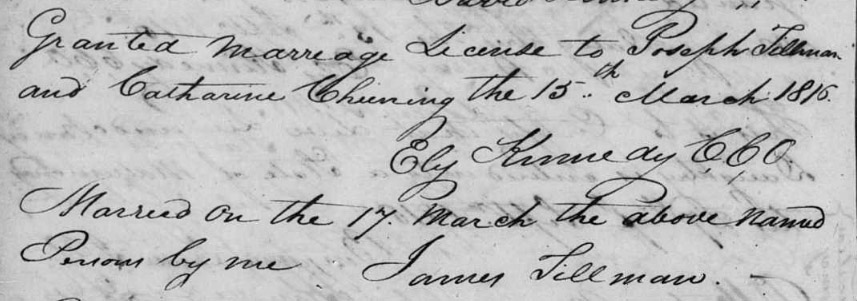 Granted Marreage License to Joseph Tillman
and Catharine Cheening the 15th March 1816.
Ely Kennedy C,C,O.
Marreed on the 17. March the above named
Persons by me James Tillman.